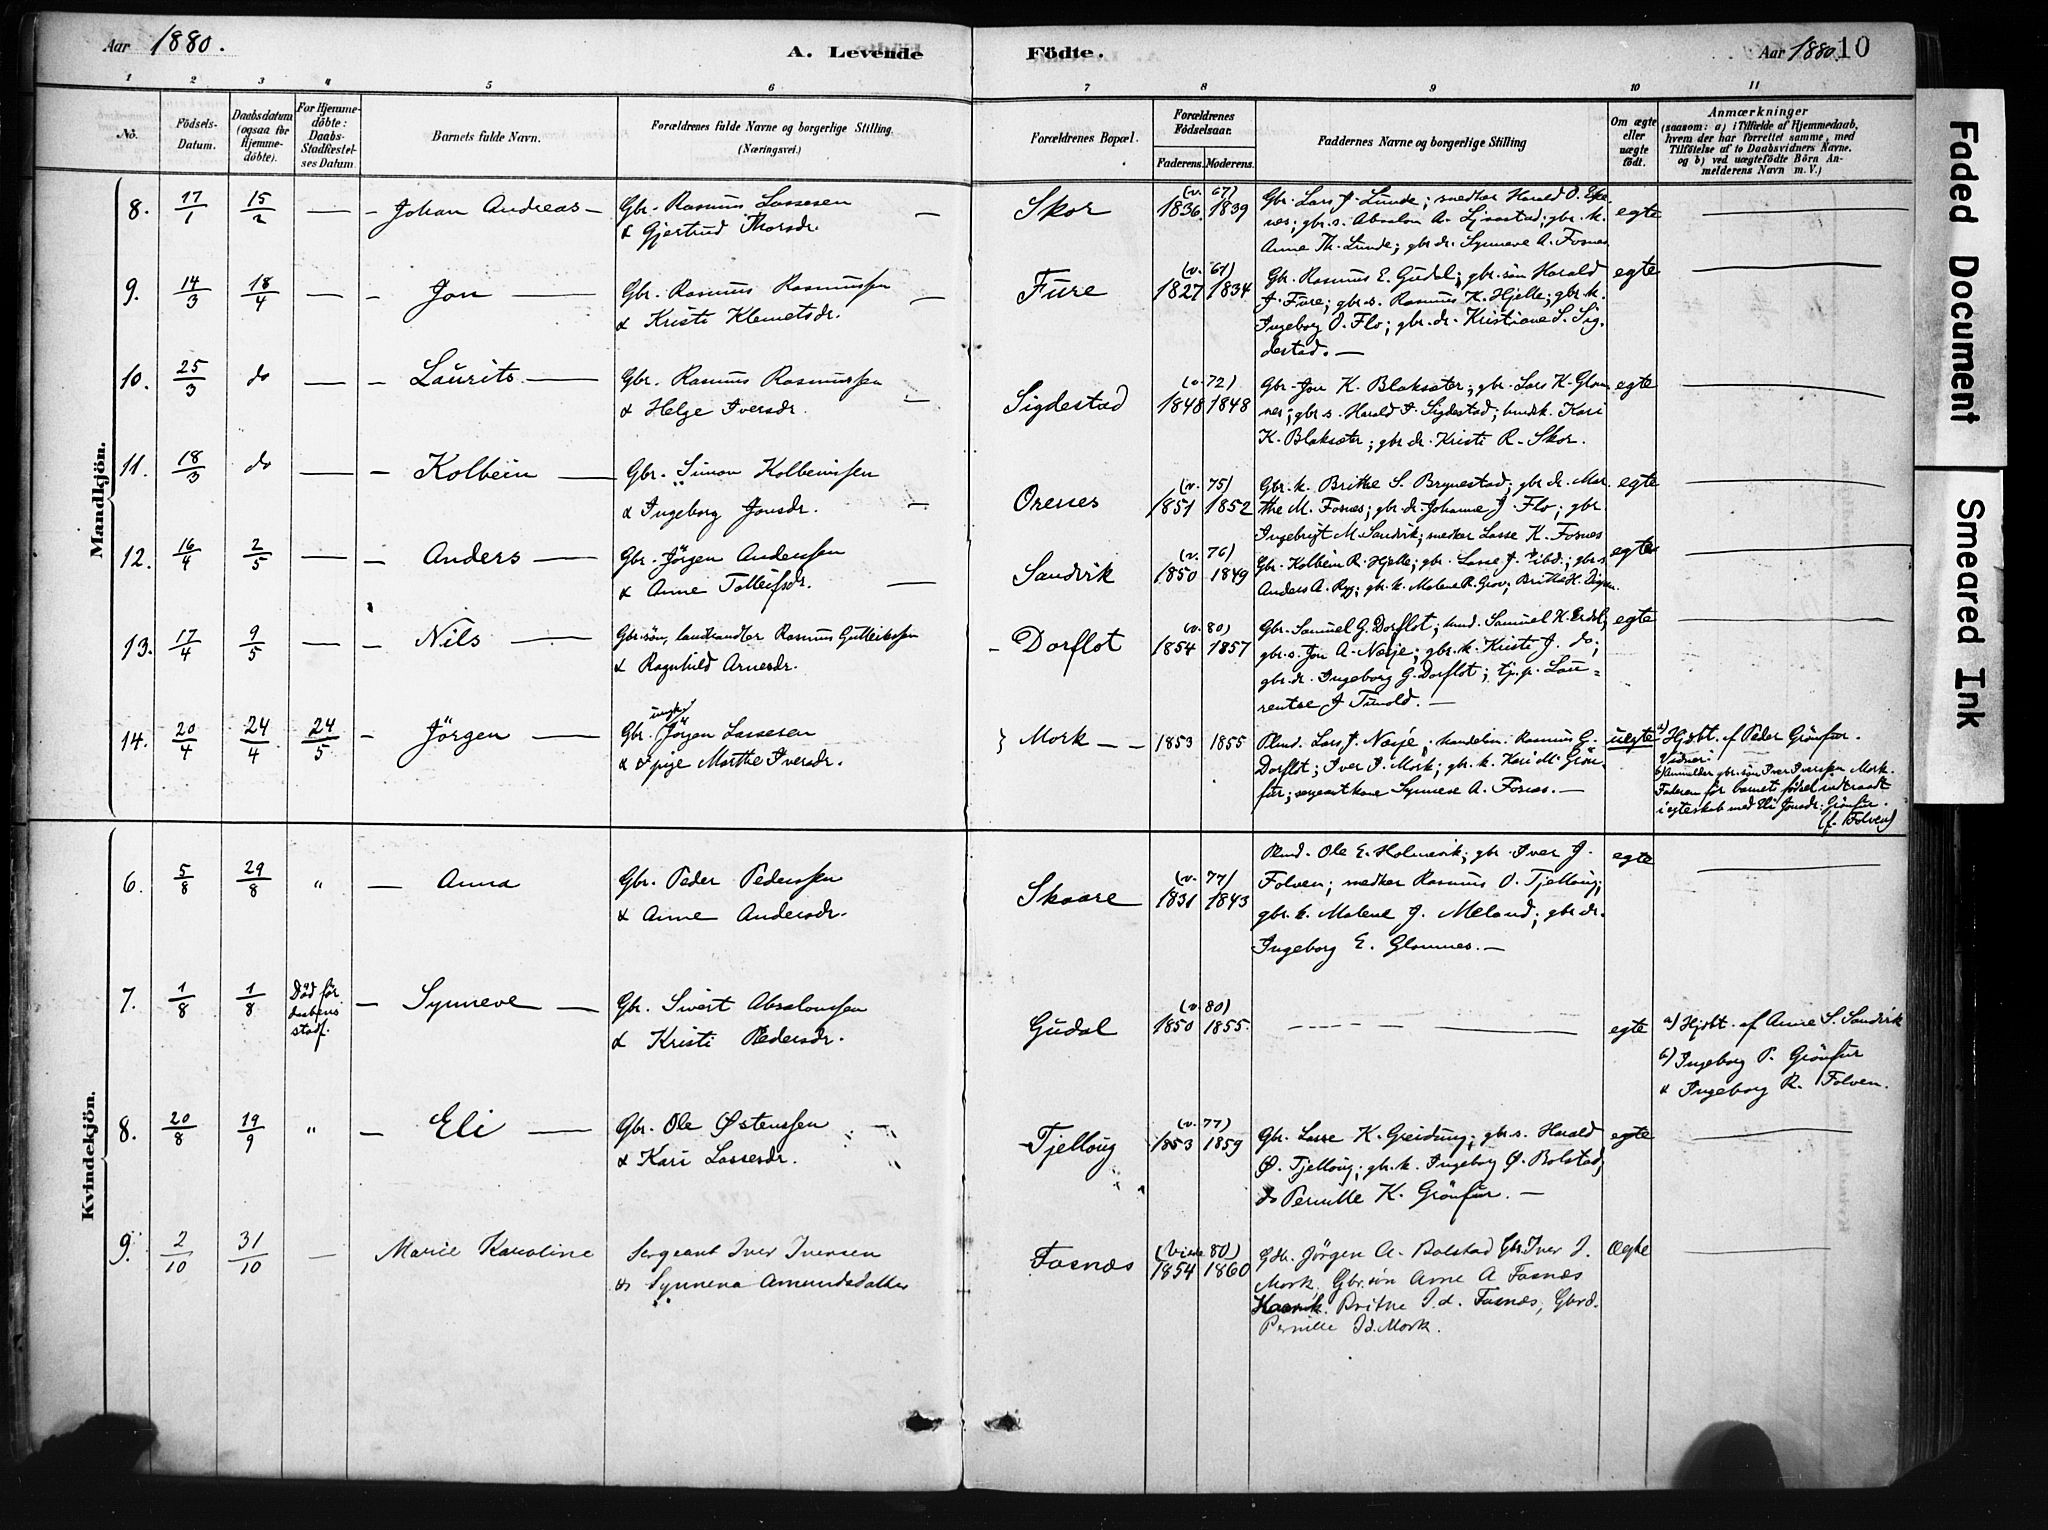 Aar 1880.
A. Levende Födte.
Aar 1880. 10
1 2 3 4 5 6 7 8 9 10 11
No.
Födsels-Datum.
Daabsdatum (ogsaa for Hjemmedöbte).
For Hjemmedöbte: Daabs-Stadfæstelses Datum.
Barnets fulde Navn.
Forældrenes fulde Navne og borgerlige Stilling. (Næringsvei.)
Forældrenes Bopæl.
Forældrenes Födselsaar.
Faderens. Moderens.
Faddernes Navne og borgerlige Stilling
Om ægte eller uægte födt.
Anmærkninger
(saasom: a) i Tilfælde af Hjemmedaab,
hvem der har forrettet samme, med
Tilföielse af to Daabsvidners Navne.
og b) ved uægtefödte Börn An-
melderens Navn m. V.)
Mandkjön.
8. 17/1 15/2 — - Johan Andreas -
Gbr. Rasmus Lassesen
& Gjertrud Thorsdr.
Skor
(v. 67)
1836. 1839
Gbr. Lars J. Lunde; snedker Harald O.
gbr. s. Absalon A.
Anna Th. Lunde; gbr. dr. Synneve A. Fosnes
egte
9. 14/3 18/4 — - Jon —
Gbr. Rasmus Rasmussen
& Kristi Klemetsdr.
Fure
(v. 61)
1827 1834
Gbr. Rasmus E. Gudal; gbr. sön Harald
J. Fure; gbr. s. Rasmus K. Hjelle; gbr. k.
Ingeborg O. Flo; gbr. dr. Kristiane S. Sig-
destad. —
egte
10. 25/3 do — - Laurits. —
Gbr. Rasmus Rasmussen
& Helge Iversdr.
Sigdestad
(v. 72)
1848 1848
Gbr. Jon K. Blaksæter; gbr. Lars K. Glom-
nes; gbr. s. Harald J. Sigdestad; hmdk. Kari
K. Blaksæter; gbr. dr. Kristi R. Skor.
egte
11. 18/3 do — - Kolbein —
Gbr. Simon Kolbeinssen
& Ingeborg Jonsdr.
Orenes
(v. 75)
1851 1852
Gbr. k. Brithe S. Brynestad; gbr. dr. Mar-
the M. Fosnes; gbr. dr. Johanne J. Flo; gbr.
Ingebrigt M. Sandvik; snedker Lasse K. Fosnes
egte
12. 16/4 2/5 — - Anders —
Gbr. Jörgen Anderssen
& Anne Tolleifsdr.
Sandvik
(v. 76)
1850 1849
Gbr. Kolbein R. Hjelle; gbr. Lasse J. ibd; gbr. s.
Anders A. Ryg; gbr. k. Malene R. Grov; Brithe H.
egte
13. 17/4 9/5 — - Nils —
Gbr. sön, landhandler Rasmus Gulleikssen
& Ragnhild Arnesdr.
- Dorflot
(v. 80)
1854 1857
Gbr. Samuel G. Dorflot; hmd. Samuel H. Erdal;
gbr. s. Jon A. Nesje; gbr. k. Kristi J. do;
gbr. dr. Ingeborg G. Dorflot; tj. p. Lau-
rentse J. Tinold. —
egte
14. 20/4 24/4 24/5 - Jörgen —
ungk.
Gbr. Jörgen Lassesen
& pige Marthe Iversdr.
} Mork - -
1853 1855
Plmd. Lars J. Nesje; handelsm. Rasmus G.
Dorflot; Iver I. Mork; gbr. k. Kari M. Grön-
fur; sergeantkone Synneve A. Fosnes. —
uegte
a) Hjdbt. af Peder Grönfur.
Vidner:
b) Anmelder gbr. sön Iver Iverssen Mork.
Faderen för barnets födsel indtraadt
i egteskab med Eli Jonsdr. Grönfur.
(f. Folven)
Kvindekjön.
6. 5/8 29/8 " — Anna
Gbr. Peder Pederssen
& Anne Andersdr.
Skaare
(v. 77)
1831 1843
Plmd. Ole E. Holmevik; gbr. Iver J.
Folven; snedker Rasmus O. Tjellaug;
gbr. k. Malene J. Meland; gbr. dr.
Ingeborg E. Glomnes. —
egte
7. 1/8 1/8 Död för daabens stadf. — Synneve —
Gbr. Sivert Absalonssen
& Kristi Pedersdr.
Gudal
(v. 80)
1850 1855.
egte
a) Hjdbt. af Anne S. Sandvik
b) Ingeborg P. Grönfur
& Ingeborg R. Folven.
8. 20/8 19/9 " — Eli —
Gbr. Ole Østenssen
& Kari Lassesdr.
Tjellaug
(v. 77)
1853 1859
Gbr. Lasse K. Greidung; gbr. s. Harald
Ø. Tjellaug; gbr. k. Ingeborg Ø. Bolstad;
do Pernille K. Grönfur. —
egte
9. 2/10 31/10 — Marie Karoline
Sergeant Iver Iversen
& Synneva Amundsdatter
Fosnæs
(Viede 80)
1854 1860
Gbr. Jörgen A. Bolstad Gbr. Iver I.
Mork. Gbr. sön Arne A Fosnæs
Brithe I. d. Fosnæs, Gbrd.
Pernille I d. Mork.
Ægte
Faded Document
Smeared Ink